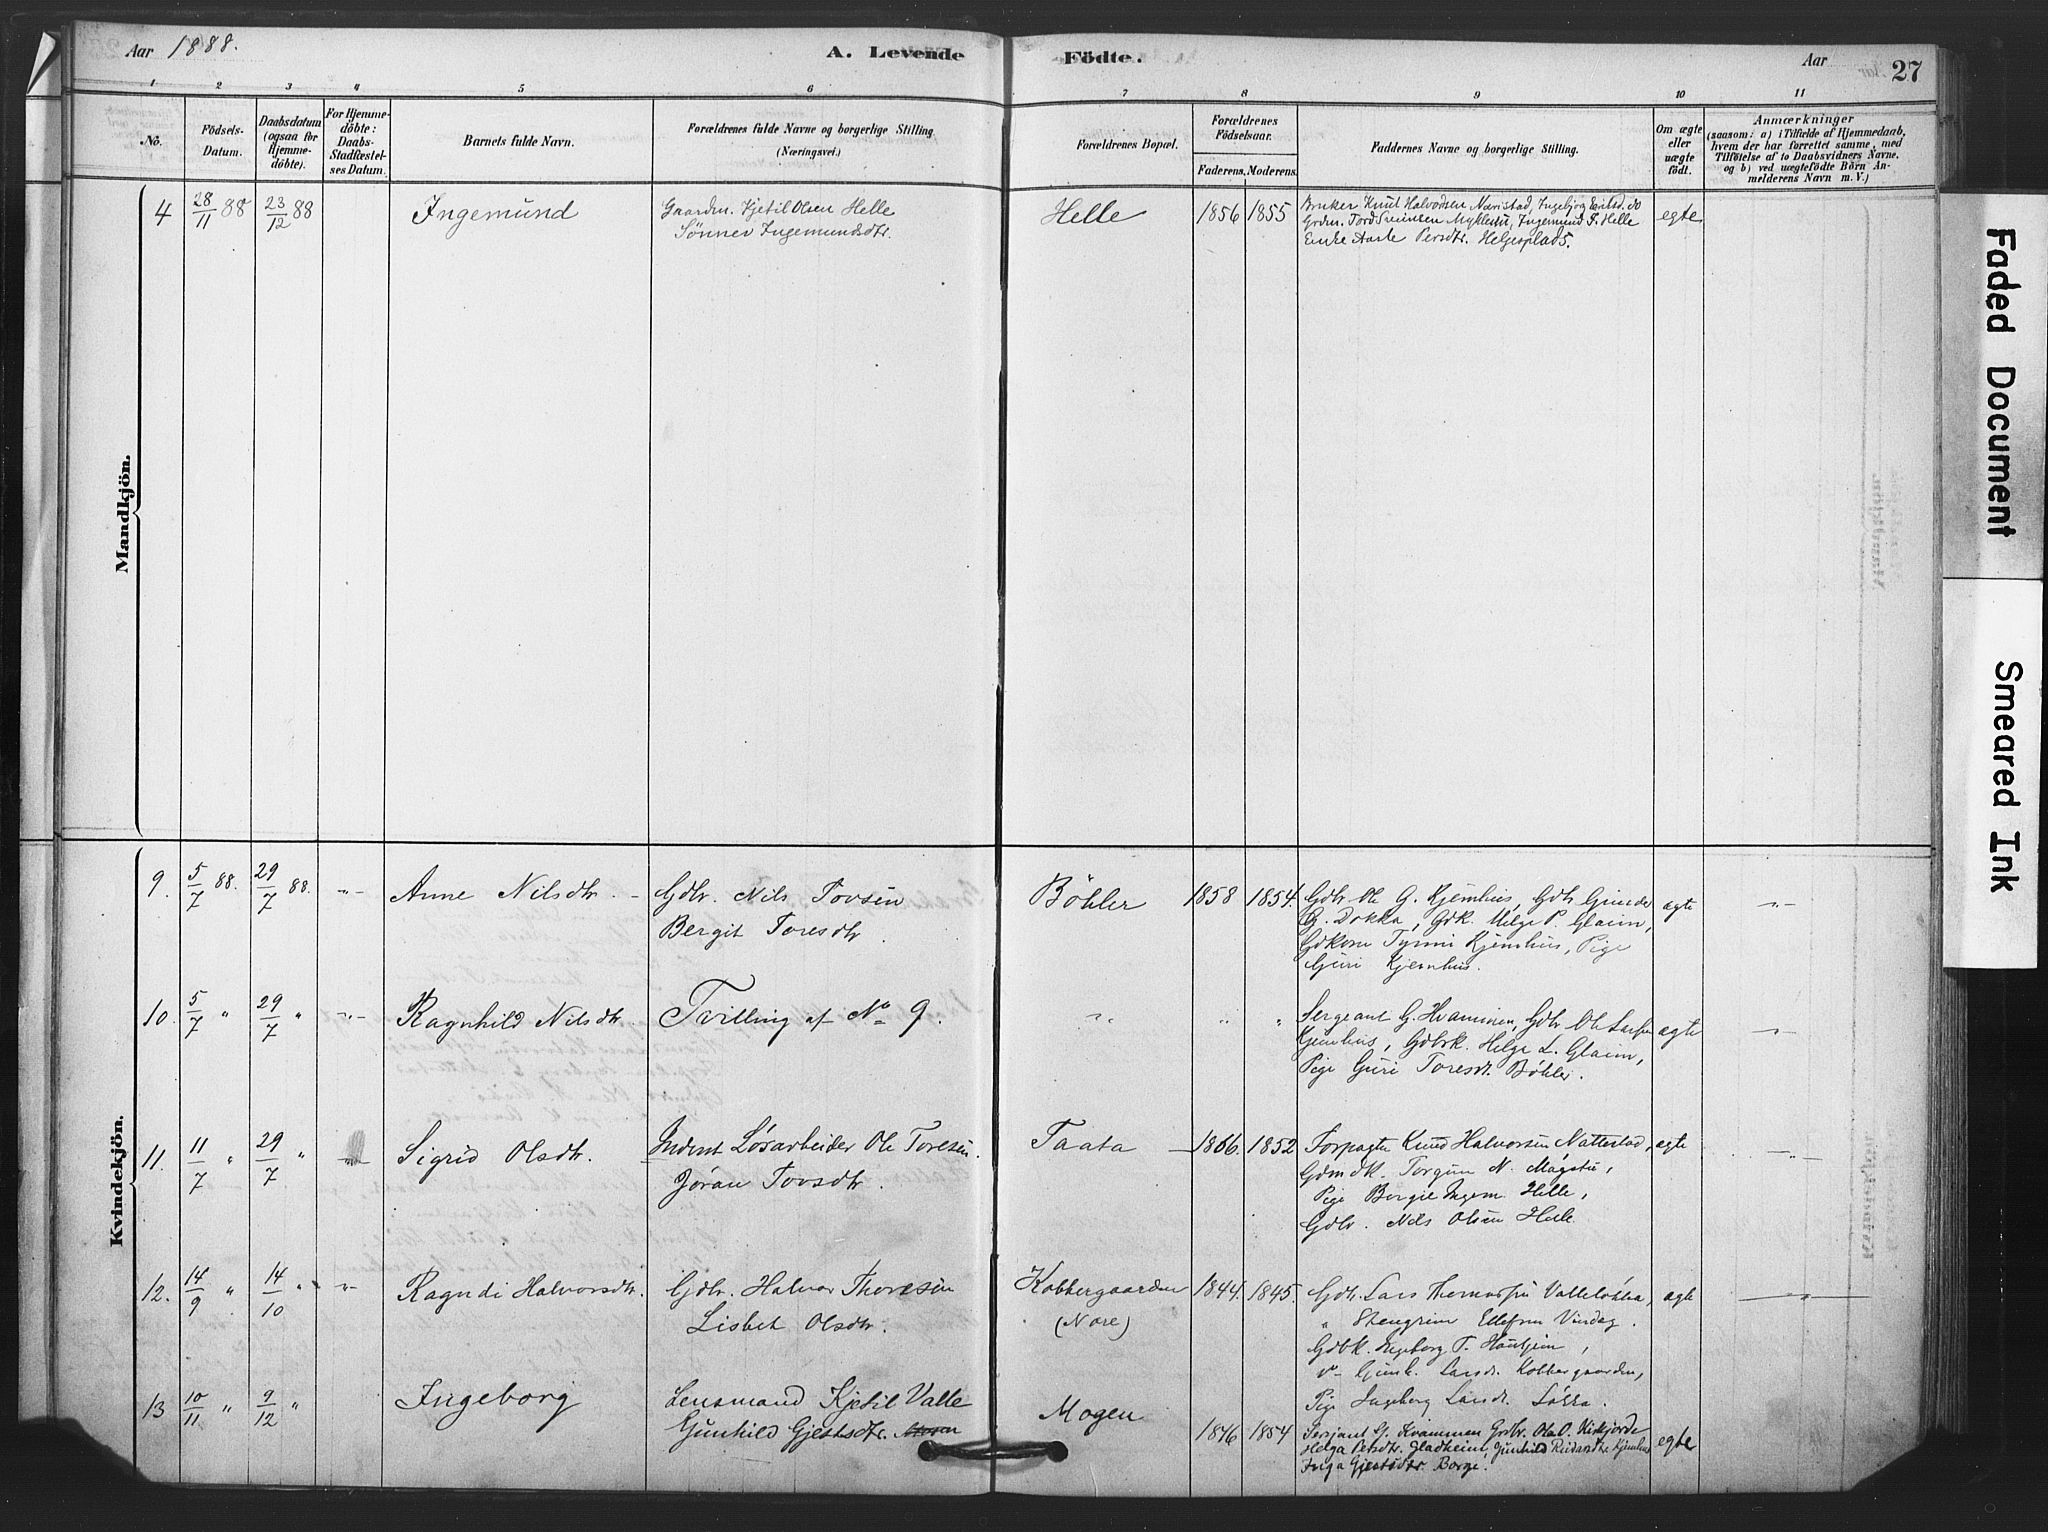 Aar 1888.
A. Levende
Födte.
Aar
27
1 2 3 4 5 6 7 8 9 10 11
No.
Födsels-
Datum.
Daabsdatum
(ogsaa for
Hjemme-
döbte).
For Hjemme-
döbte:
Daabs-
Stadfæstel-
ses Datum.
Barnets fulde Navn.
Forældrenes fulde Navne og borgerlige Stilling.
(Næringsvei.)
Forældrenes Bopæl.
Forældrenes
Födselsaar.
Faderens. Moderens.
Faddernes Navne og borgerlige Stilling.
Om ægte
eller
uægte
födt.
Anmærkninger
(saasom: a) i Tilfælde af Hjemmedaab,
hvem der har forrettet samme, med
Tilföielse af to Daabsvidners Navne.
og b) ved uægtefödte Börn An-
melderens Navn m. V.)
Mandkjön.
4 28/11 88 23/12 88 Ingemund
Gaardm. Kjetil Olsen Helle
Sönnev Ingemundsdtr.
Helle 1856 1855
Bruker Knut Halvodsen Nævistad, Ingebjorg do
Grdm. Tord Sveinsen Myklestu, Ingemund P. Helle
Enke Aaste Persdtr. Helgesplads.
egte
Kvindekjön.
9. 5/7 88. 29/7 88. -"- Anne Nilsdtr. -
Gdbr. Nils Tovsen
Bergit Toresdtr.
Böhler 1858 1854.
Gdbr Ole G. Kjemhus, Gdbr Gunder
G. Dokka, Gdk. Helge P. Glaim,
Gdkone Kjemhus, Pige
Guri Kjemhus.
ægte -"-
10. 5/7 " 29/7 " -"- Ragnhild Nilsdtr.
Tvilling af No 9.
-"- " "
Sergeant G. Kvammen, Gdbr Ole Larsen
Kjemhus, Gdbrk. Helge L. Glaim,
Pige Guri Toresdt. Böhler.
ægte -"-
11. 11/7 " 29/7 " -"- Sigrid Olsdtr.
Inderst Lösarbeider Ole Toresen.
Jöran Tovsdtr.
Taata 1866. 1852
Forpagter Knud Halvorsen Nattestad,
Gdmdk. Torgun N. Mögstu,
Pige Bergit Ingem. Helle,
Gdbr. Nils Olsen Helle
ægte -"-
12. 14/9 " 14/10 " -"- Ragndi Halvorsdtr.
Gdbr. Halvor Thoresen
Lisbet Olsdtr.
Kobbergaarden
(Nore)
1844. 1845.
Gdbr. Lars Thomassen Vallelökka,
" Stengrim Ellefsen Vindeg.
Gdbk. Ingeborg T.
" Gunh. Larsdt. Kobbergaarden,
Pige Ingeborg Larsdt. Lökka.
ægte -"-
13 10/11 " 9/12 " Ingeborg
Lensmand Kjetil Valle
Gunhild Gjestsdtr.
Mogen
1846 1854
Sersjant G. Kvammen Grdbr. Ola O. Kirkjorde
Helga Persdtr. Gladheim, Gunhild Reidarsdtr. Kjemhus
Inga Gjestsdtr. Borge.
egte
Faded Document
Smeared Ink